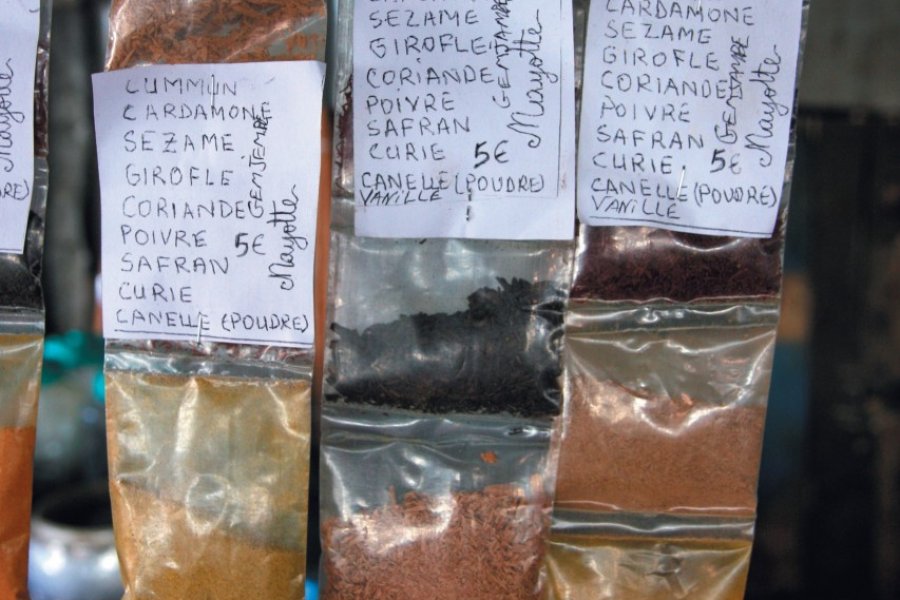 Mayotte
RE)
CUMMUN
CARDAMONE
SEZAME
GIROFLE
CORIANDE
POIVRE 5€
SAFRAN
CURIE
CANELLE (POUDRE)
GEMJEMBRE
Mayotte
SEZAME
GIROFLE
CORIANDE
POIVRE
SAFRAN
CURIE 5€
CANELLE (POUDRE)
VANILLE
Mayotte
CARDAMONE
SEZAME
GIROFLE
CORIANDE
POIVRE
SAFRAN
CURIE. 5€
CANELLE (POUDRE)
VANILLE
Mayotte